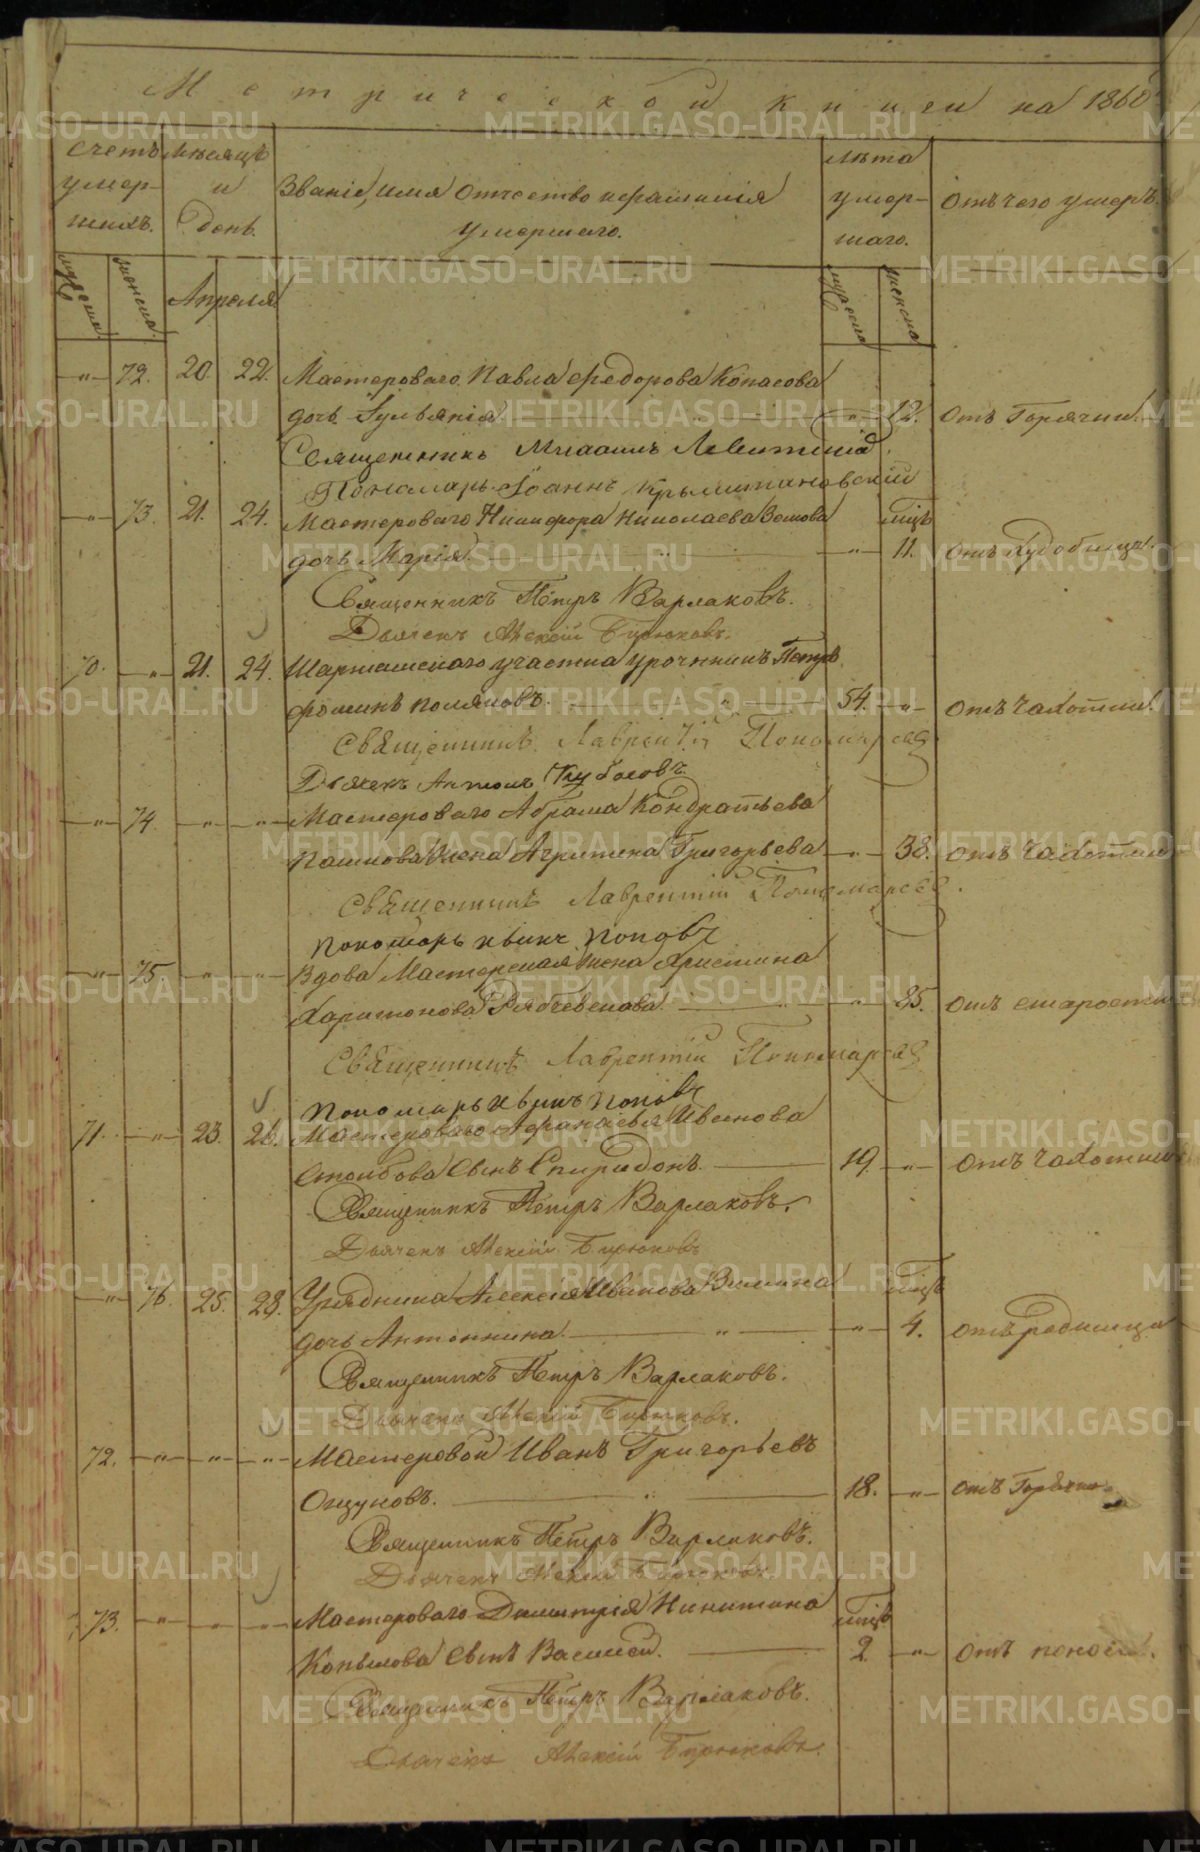 Метрической книги на 1860
Счетъ умер- шихъ.
Мѣсяцъ и день.
Званіе, имя отчество и фамилія умершаго.
Лѣта умер- шаго.
Отъ чего умеръ.
мужеска женска
Апреля
мужеска женска
-"- 72. 20. 22. Мастероваго Павла Федорова Копасова
дочь Iуліянія -"- 12. отъ Горячки.
Священникъ Михаилъ Левитскій.
Пономарь Іоаннъ Крыжановскій
-"- 73. 21. 24. Мастероваго Никифора Николаева мцъ
дочь Марія -"- 11. отъ Худобищи.
Священникъ Петръ Варлаковъ.
Дьячекъ Алексій Бирюковъ.
70. -"- 21. 24. Шарташскаго участка урочникъ Петръ
Фоминъ Поляковъ. 54. -"- отъ Чахотки.
Священникъ Лаврентій Пономаревъ
Дьячекъ Антонъ
-"- 74. -"- -"- Мастероваго Абрама Кондратьева
Пашкова жена Агрипина Григорьева -"- 38. отъ Чахотки
Священникъ Лаврентій Пономаревъ.
Пономарь Поповъ
-"- 75. -"- -"- Вдова Мастерская жена Христина
Харитонова -"- 85. отъ старости
Священникъ Лаврентій Пономаревъ
Пономарь Поповъ
71. -"- 23. 26. Мастероваго Афанасья Иванова
Столбова сынъ Спиридонъ. 19. -"- отъ Чахотки
Священникъ Петръ Варлаковъ.
Дьячекъ Алексій Бирюковъ
-"- 76. 25. 28. Урядника Алексія Иванова мцъ
дочь Антонина. -"- -"- 4. отъ родимца
Священникъ Петръ Варлаковъ.
Дьячекъ Алексій Бирюковъ.
72. -"- -"- -"- Мастеровой Иванъ Григорьевъ
18. -"- отъ Горячки
Священникъ Петръ Варлаковъ.
Дьячекъ Алексій Бирюковъ.
73. -"- -"- -"- Мастероваго Димитрія Никитина мцъ
Копылова сынъ Василій. 2. -"- отъ поноса.
Священникъ Петръ Варлаковъ.
Дьячекъ Алексій Бирюковъ.
METRIKI.GASO-URAL.RU